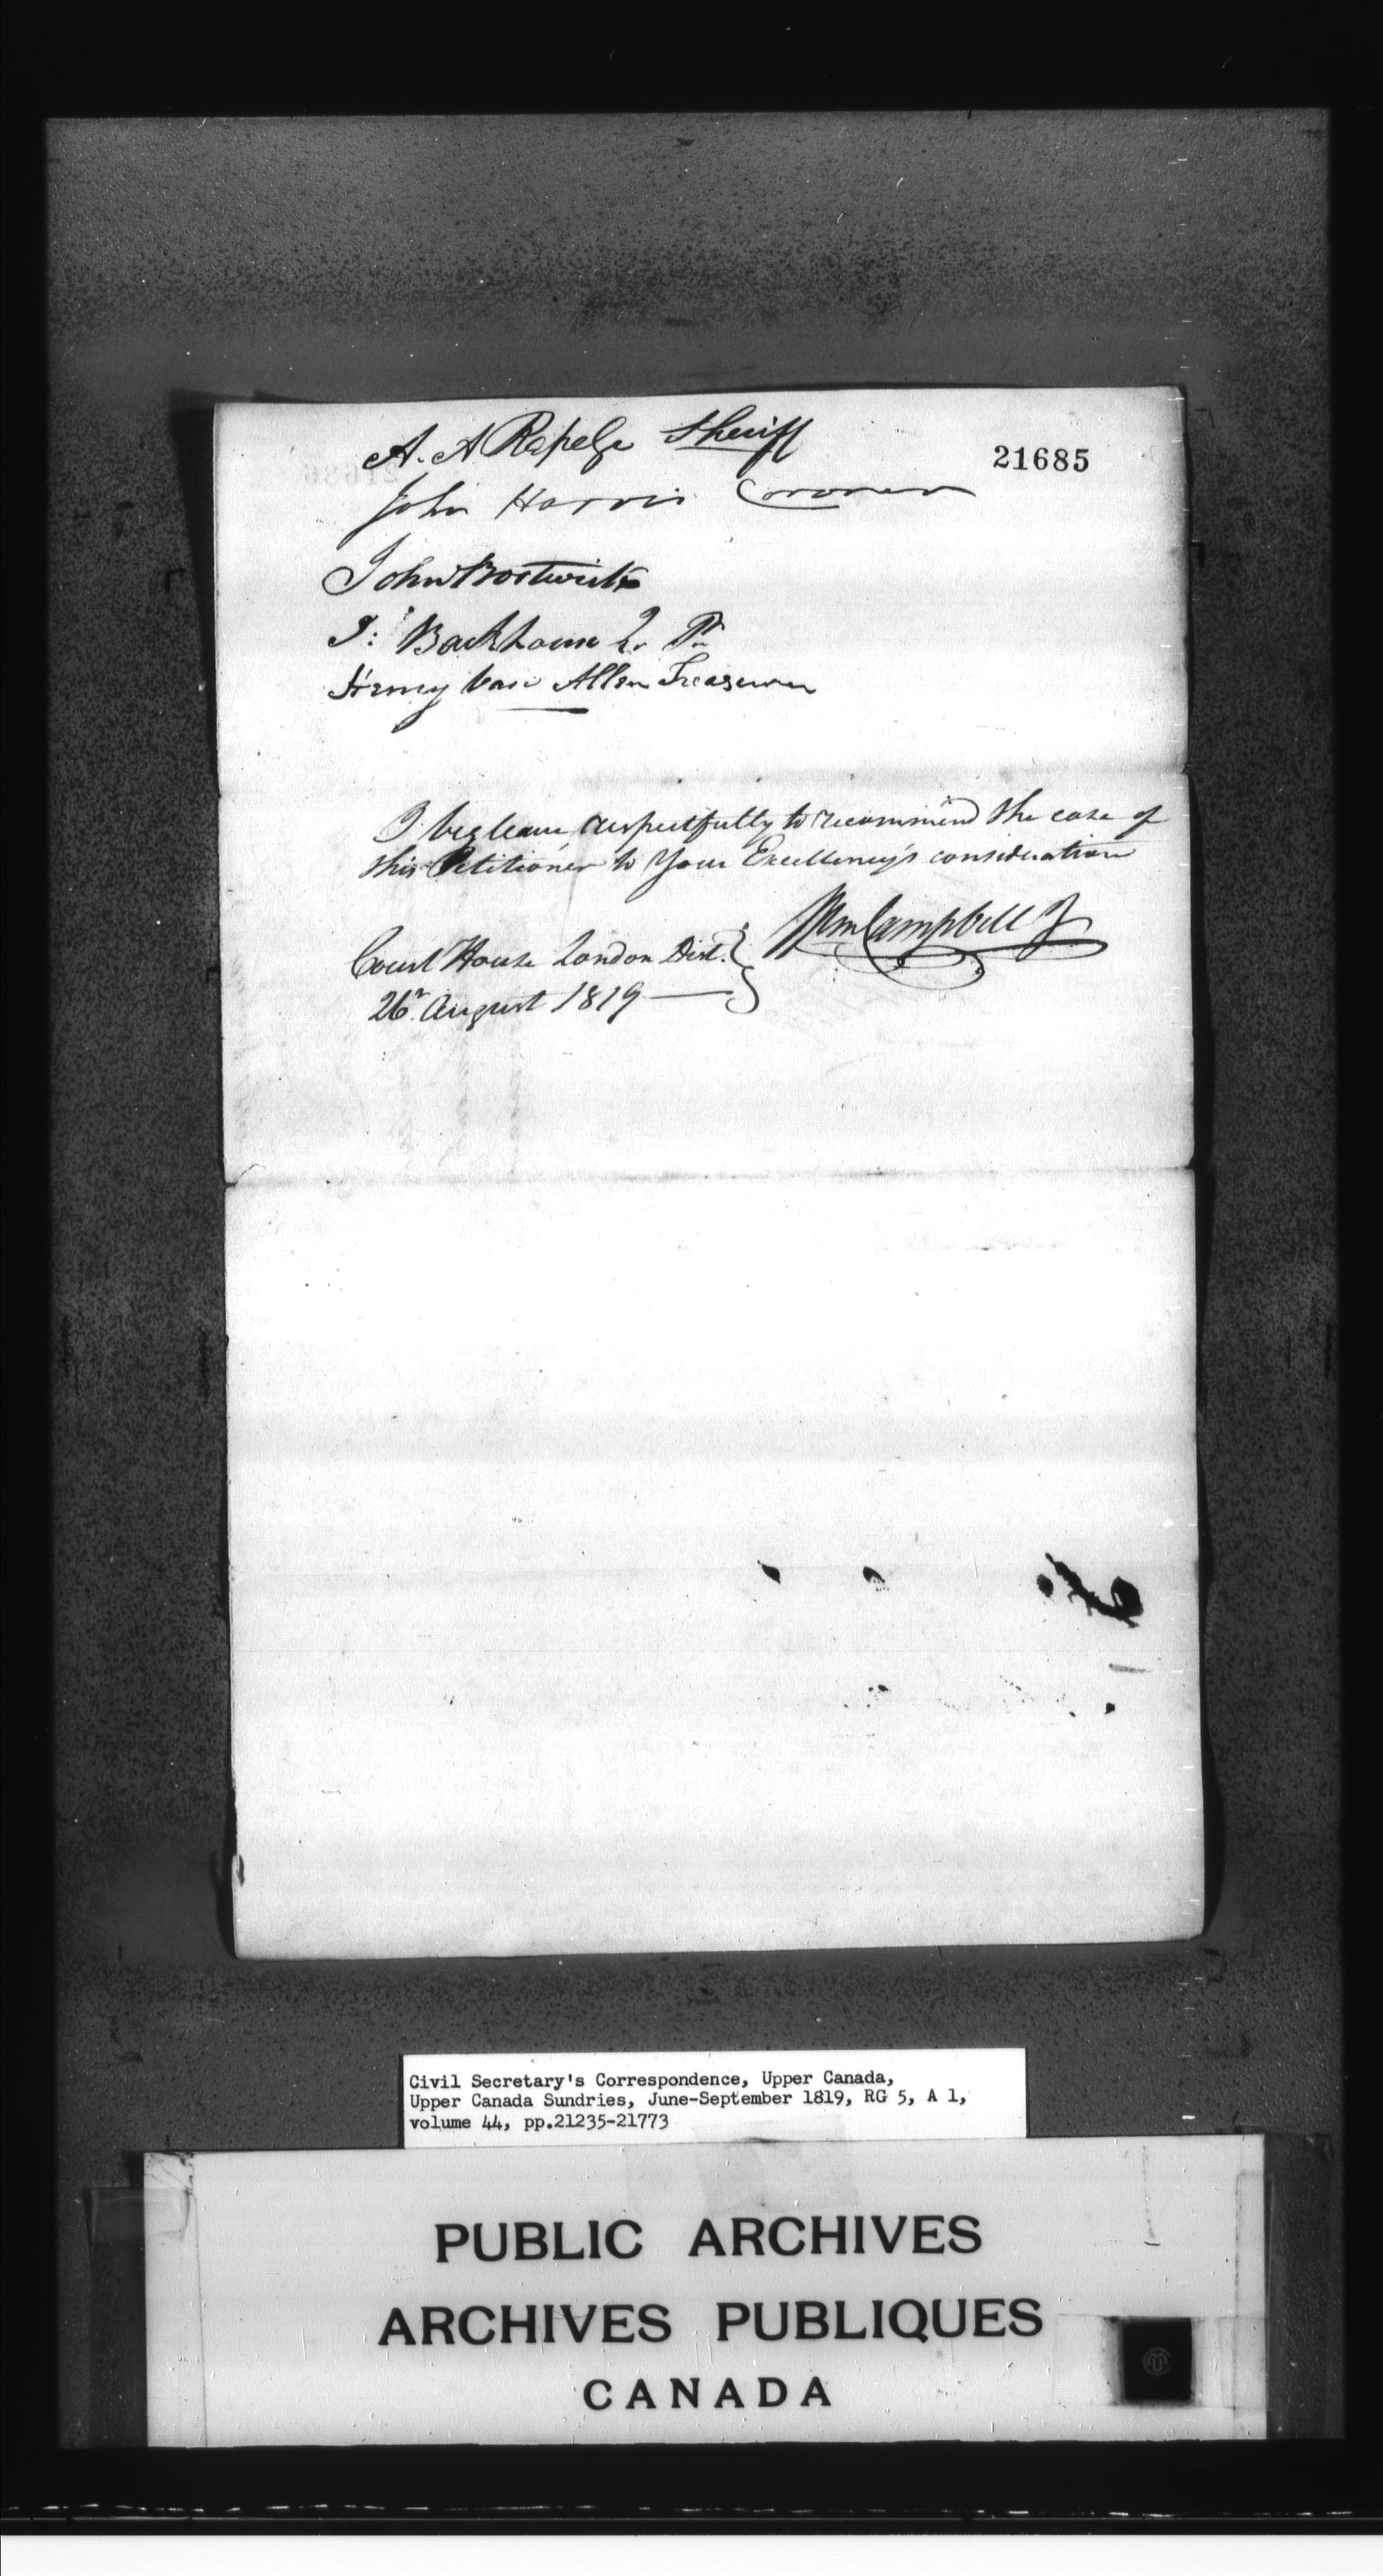 21685
A. A Rapelje Sheriff
John Harris Coroner
John Bostwick
J: Backhouse
Henry Van Allen Treasurer
I beg leave respectfully to recommend the case of
this Petitioner to Your Excellency's consideration
Wm Campbell J
Court House London Dist.
26 August 1819
Civil Secretary's Correspondence, Upper Canada,
Upper Canada Sundries, June-September 1819, RG 5, A 1,
volume 44, pp.21235-21773
PUBLIC ARCHIVES
ARCHIVES PUBLIQUES
CANADA